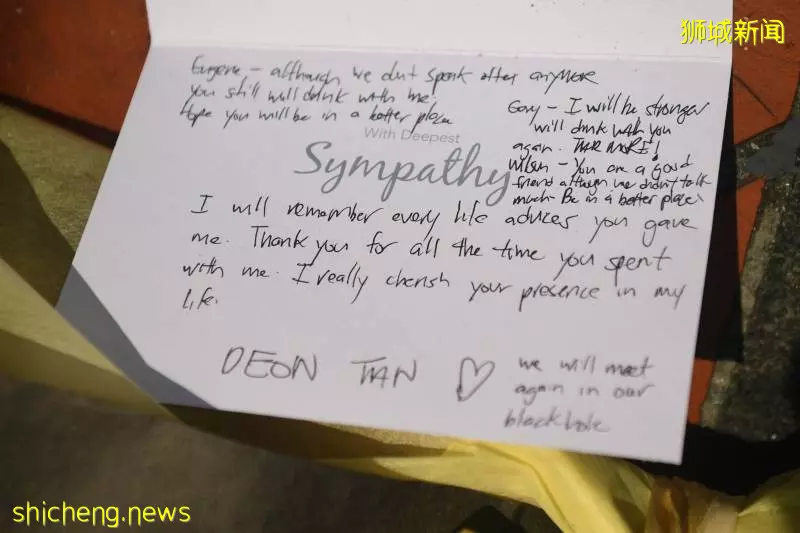 狮城新闻
Eugene - although we dun't speak often anymore
you still will drink with me.
Hope you will be in a better place
Gary - I will be stronger
will drink with you
again. MORE!
Wilson - You are a good
friend although we didn't talk
much. Be in a better place
With Deepest
Sympathy
I will remember every life advices you gave
me. Thank you for all the time you spent
with me. I really cherish your presence in my
life.
DEON TAN ♡
we will meet
again in our
blackhole
shicheng.news